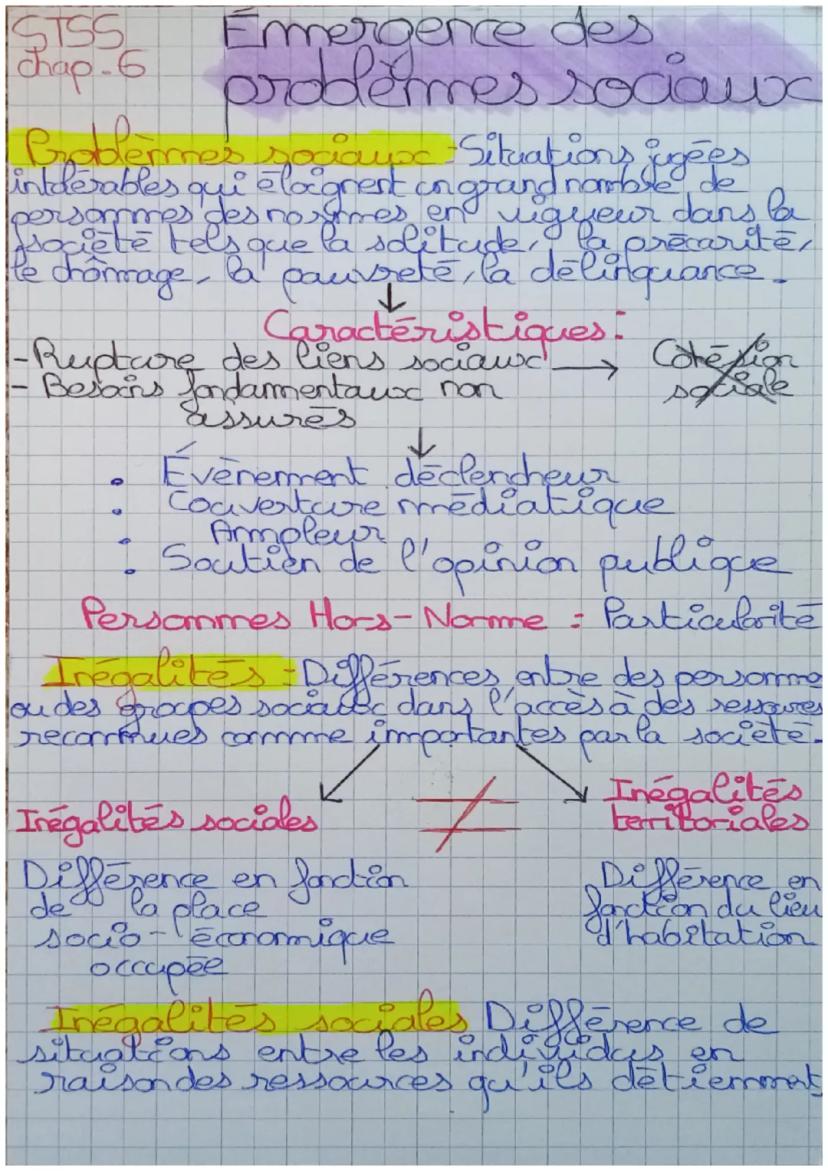 STSS
chap. 6
Émergence des
problèmes sociaux
Problèmes sociaux - Situations jugées
intolérables qui éloignent un grand nombre de
personnes des normes en vigueur dans la
société tels que la solitude, la précarité,
le chômage, la pauvreté, la délinquance.
↓
Caractéristiques :
- Rupture des liens sociaux → Cohésion
- Besoins fondamentaux non sociale
assurés
↓
• Évènement déclencheur
• Couverture médiatique
• Ampleur
• Soutien de l'opinion publique
Personnes Hors-Norme : Particularité
Inégalités - Différences entre des personne
ou des groupes sociaux dans l'accès à des ressources
reconnues comme importantes par la société.
Inégalités sociales ≠ Inégalités
territoriales
Différence en fonction
de la place
socio-économique
occupée
Différence en
fonction du lieu
d'habitation
Inégalités sociales Différence de
situations entre les individus en
raison des ressources qu'ils détiennent